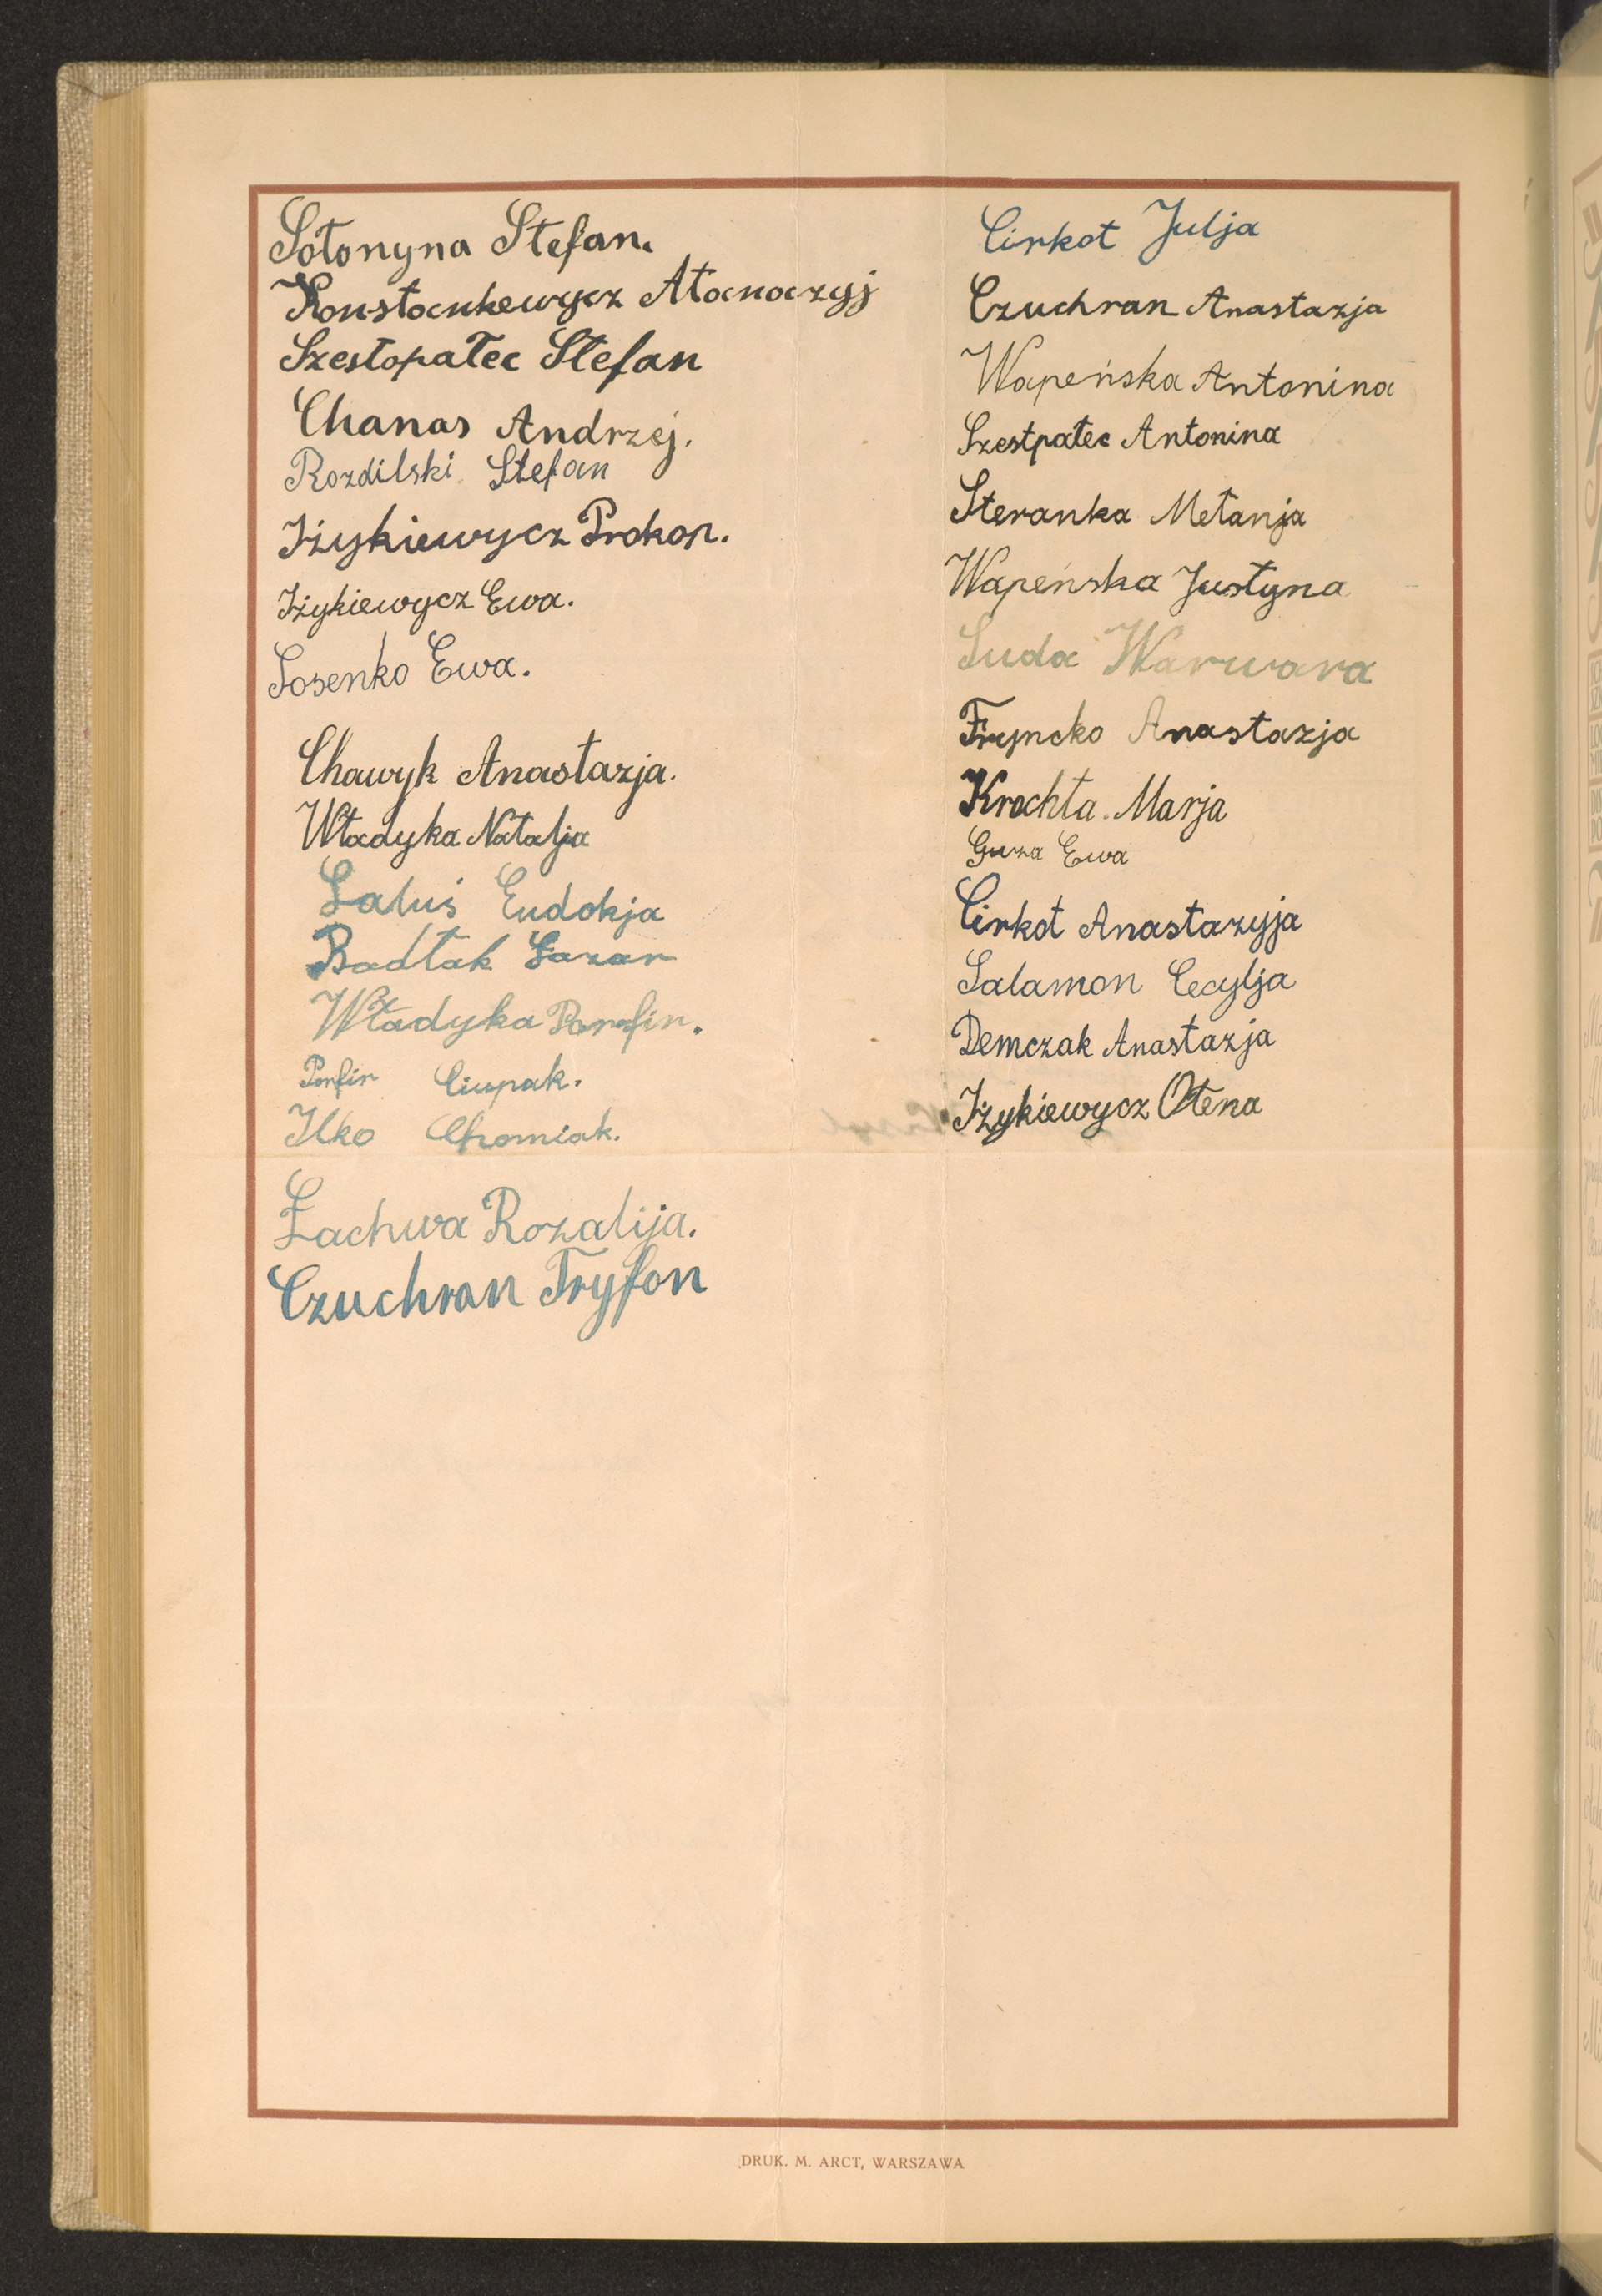 Sołonyna Stefan.
Konstankewycz Atanazyj
Szestopałec Stefan
Chanas Andrzej.
Rozdilski Stefan
Iżykiewycz Prokop.
Iżykiewycz Ewa.
Sosenko Ewa.
Chawyk Anastazja.
Władyka Natalja
Saluś Eudokja
Badłak Łazar
Władyka Porofir.
Porfir Ciupak.
Ilko Chomiak.
Łachwa Rozalija.
Czuchran Tryfon
Cirkot Julja
Czuchran Anastazja
Wapeńska Antonina
Szestpałec Antonina
Steranka Mełanja
Wapeńska Justyna
Suda Warwara
Fryncko Anastazja
Krochta Marja
Guza Ewa
Cirkot Anastazyja
Salamon Cecylja
Demczak Anastazja
Iżykiewycz Ołena
DRUK. M. ARCT, WARSZAWA